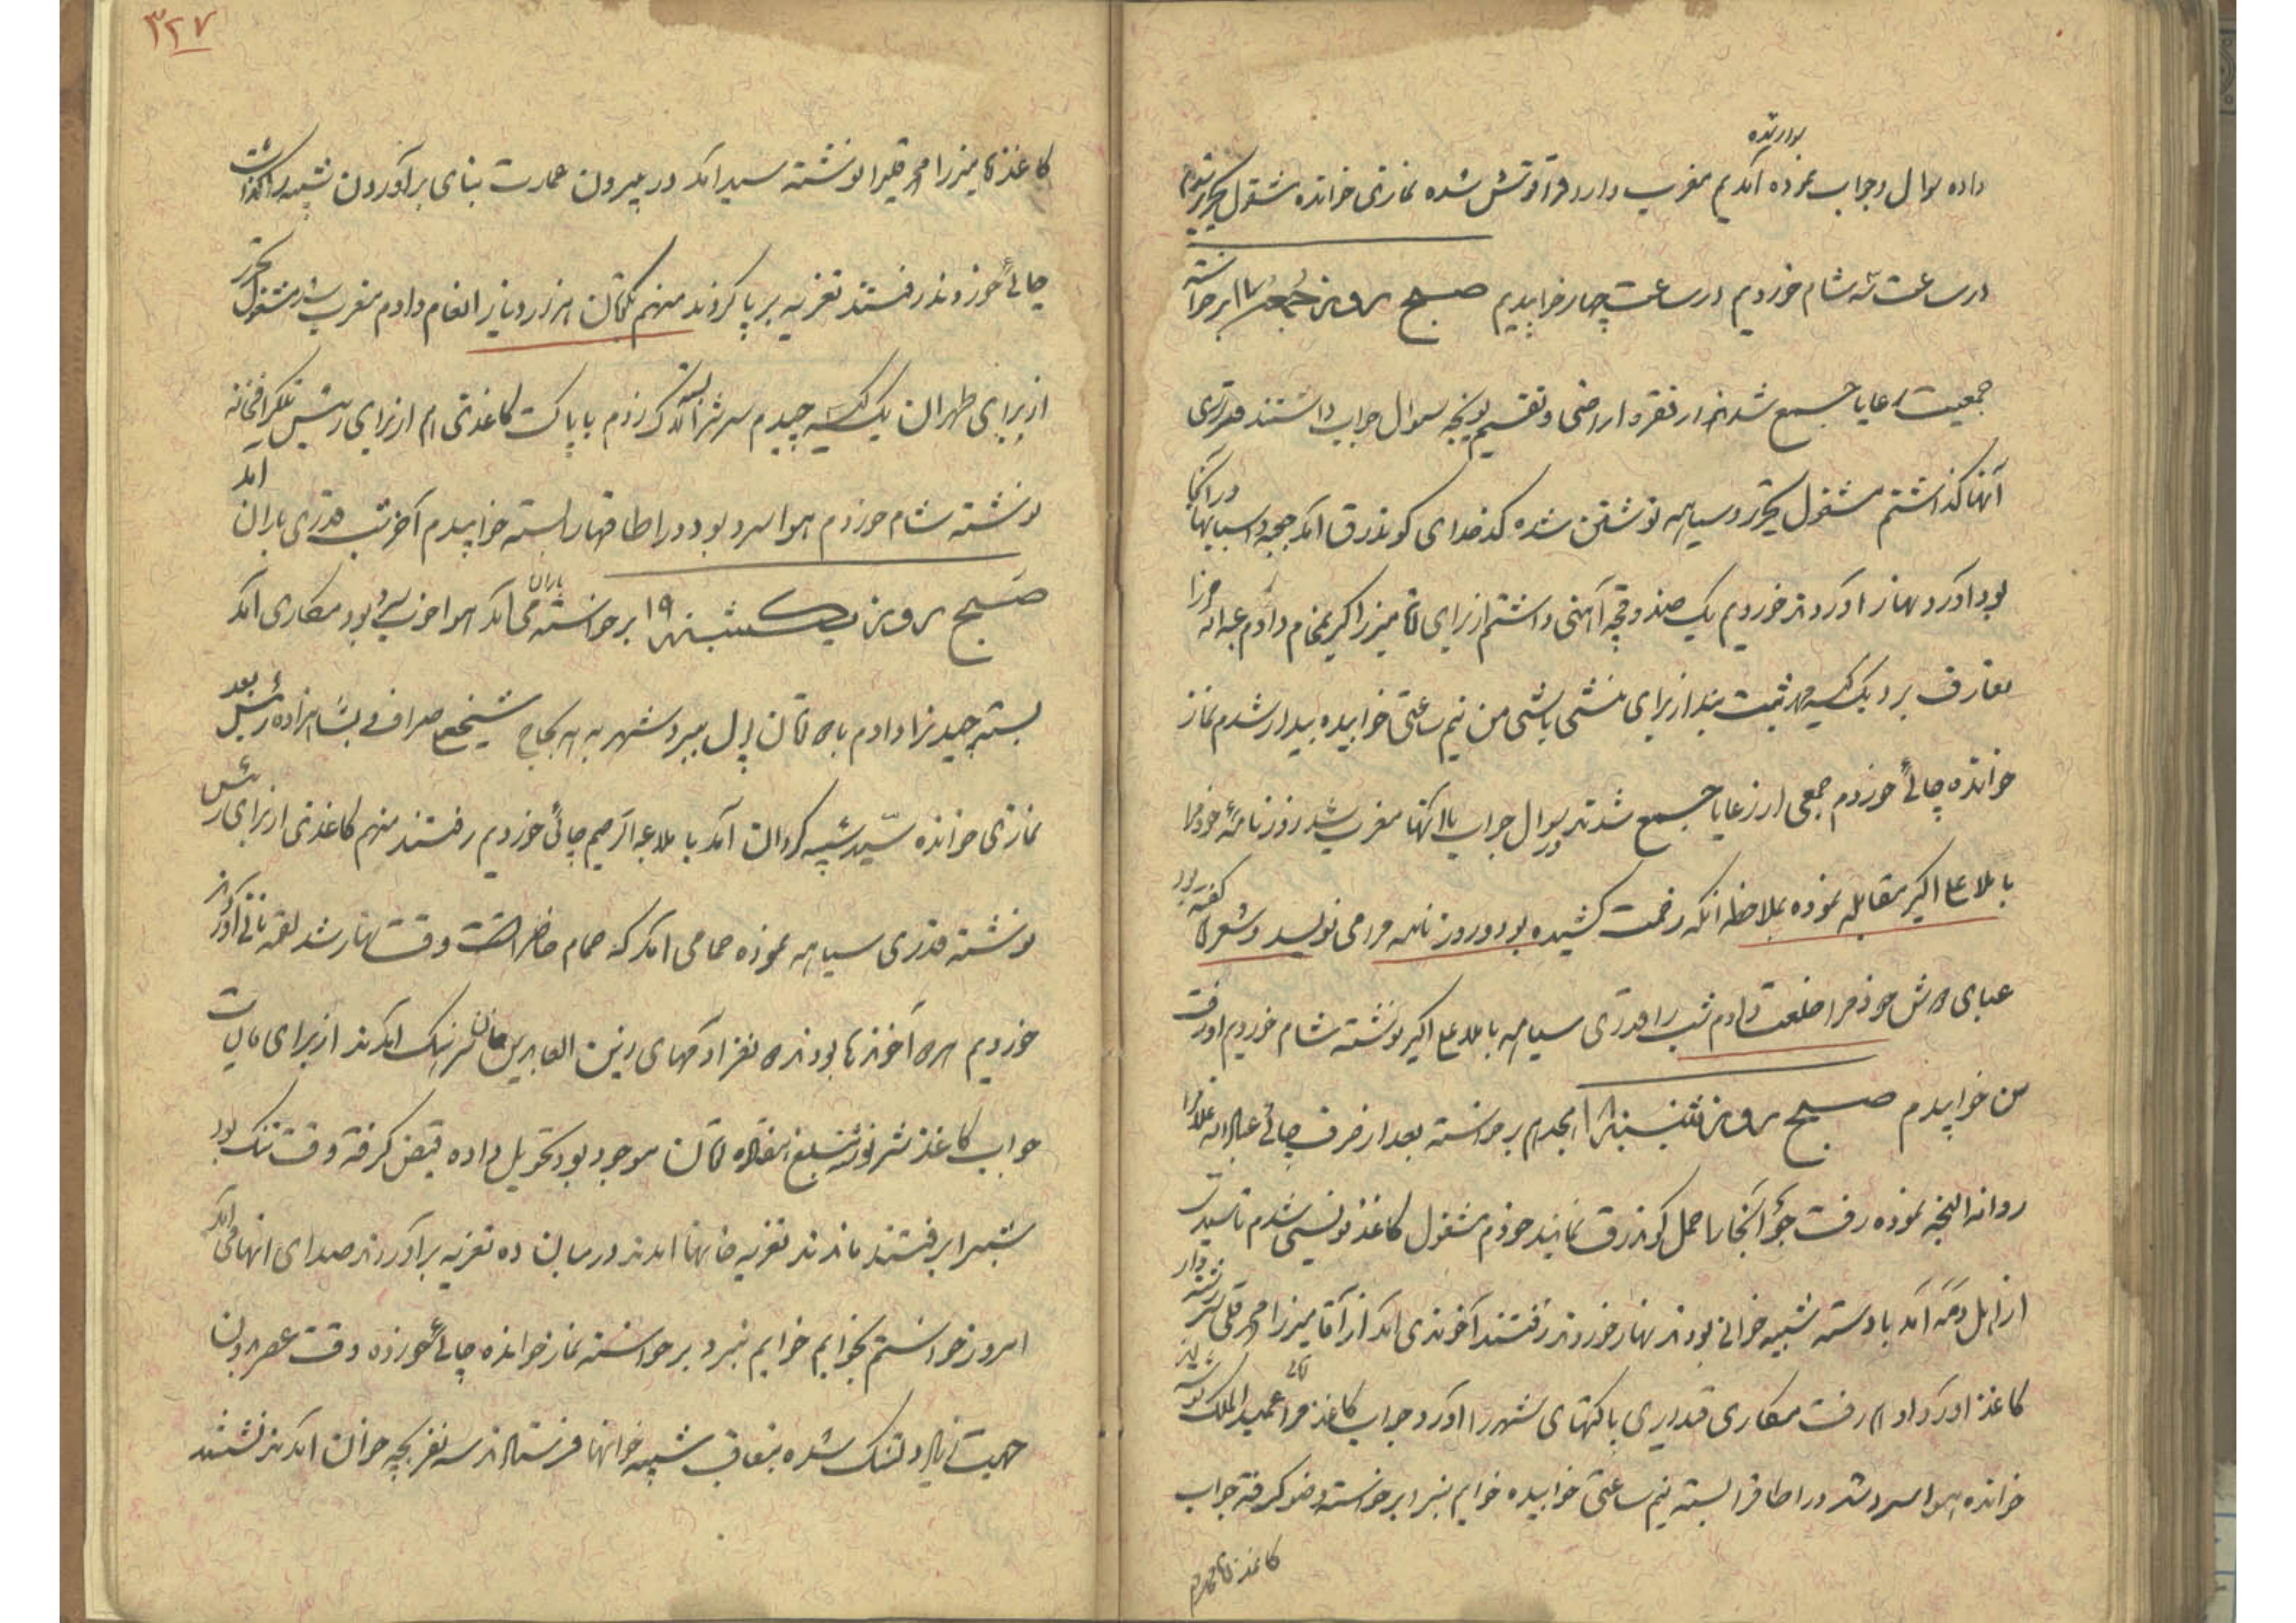 بودند
داده سوال و جواب نموده آمدیم مغرب وارد قراقوتش شده نمازی خوانده مشغول تحریر شدم
در ساعت سه شام خوردیم در ساعت چهار خوابیدیم صبح روز جمعه ۱۷ برخواسته
جمعیت رعایا جمع شدند از فقره اراضی و تقسیم یونجه سوال جواب داشتند قدری
آنها گذاشتم مشغول تحریر و سیاهه نوشتن شده کدخدای کوندرق آمد جوجه و اسبابها در آنجا
بود آورد نهار آوردند خوردیم یک صندوقچه آهنی داشتم از برای آقا میرزا اکبر بنجام دادم
تعارف برد یک کیسه مهر ثبت بند از برای منشی باشی من نیم ساعتی خوابیده بیدار شدم نماز
خوانده چائی خوردم جمعی از رعایا جمع شدند سوال جواب با آنها مغرب شد روزنامه خودم را
با ملا علی اکبر مقابله نموده بملاحظه آنکه زحمت کشیده بود و روزنامه مرا می نویسد و شعرها گفته بود
عبای دوش خودم را خلعت دادم شب را قدری سیاهه با ملا علی اکبر نوشته شام خوردیم او رفت
من خوابیدم صبح روز شنبه ۱۸ از خواب برخواسته بعد از صرف چائی
روانه النجه نموده رفت جو آنجا را حمل کوندرق نمایند خودم مشغول کاغذ نویسی شدم تا سید
از اهل دمه آمد با دسته شبیه خوانی بودند نهار خوردند رفتند آخوندی آمد از آقا میرزا محمد قلی سررشته دار
کاغذ آورد دادم رفت مکاری قیدیری پاکتهای شهر را آورد جواب کاغذ مرا آقای عمید الملک نوشته
خوانده هوا سرد شد در اطاق را بسته نیم ساعتی خوابیده خوابم نبرد برخواسته وضو گرفته جواب
کاغذ آقا محمد
۳۲۷
کاغذ آقا میرزا محمد قلی را نوشته سید آمد در بیرون عمارت بنای برآوردن شبیه را گذاشت
چائی خوردند رفتند تعزیه برپا کردند منهم یکتومان هزار دینار انعام دادم مغرب شد مشغول تحریر
از برای طهران یک کیسه چیدم سرش را لاک زدم با پاکت کاغذی هم از برای رئیس تلگرافخانه
نوشته شام خوردم هوا سرد بود در اطاقها را بسته خوابیدم آخر شب قدری باران آمد
صبح روز یکشنبه ۱۹ برخواسته باران می آمد هوا خوب بود مکاری آمد
بسته چیدنی را دادم با ۵ تومان پول ببرد شهر به شیخعلی صراف بشاهزاده رئیس بعد
نمازی خوانده سید شبیه گردان آمد با ملا عبدالرحیم چائی خوردیم رفتند منهم کاغذی از برای رئیس
نوشته قدری سیاهه نموده حمامی آمد که حمام حاضر است وقت نهار شد لقمه نانی آوردند
خوردیم آخوندها بودند نفر آدمهای زین العابدین خان سرهنگ آمدند از برای مالیات
جواب کاغذش نوشته مبلغ تومان موجود بود تحویل داده قبض گرفته وقت تنگ بود
شب را رفتند ماندند تعزیه خانها آمدند در میان ده تعزیه برآوردند صدای آنها می آمد
امروز خواستم بخوابم خوابم نبرد برخواسته نماز خوانده چائی خورده وقت عصر بود
جهت دلتنگ شده بتعاقب شبیه خوانها فرستادند سه نفر بچه خوان آمدند نشستند